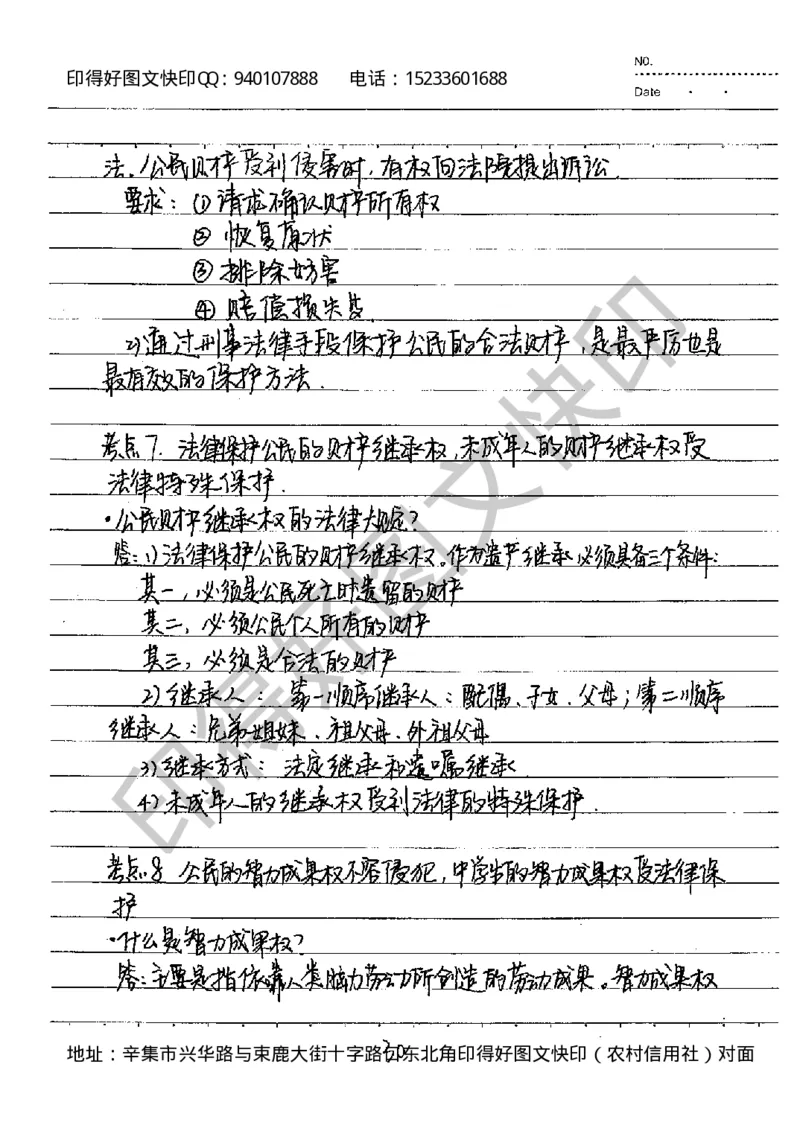 NO.
印得好图文快印QQ：940107888 电话：15233601688
Date
法。公民财产受到侵害时，有权向法院提出诉讼．
要求：①请求确认财产所有权
② 恢复原状
③ 排除妨害
④ 赔偿损失
2)通过刑事法律手段保护公民的合法财产，是最严厉也是
最有效的保护方法．
考点7．法律保护公民的财产继承权，未成年人的财产继承权受
法律特殊保护．
·公民财产继承权的法律
答：1)法律保护公民的财产继承权。作为遗产继承必须具备三个条件：
其一，必须是公民死亡时遗留的财产
其二，必须公民个人所有的财产
其三，必须是合法的财产
2)继承人：第一顺序继承人：配偶、子女、父母；第二顺序
继承人：兄弟姐妹、祖父母、外祖父母
3)继承方式：法定继承和遗嘱继承．
4)未成年人的继承权受到法律的特殊保护．
考点8 公民的智力成果权不容侵犯，中学生的智力成果权受法律保
护
·什么是智力成果权？
答：主要是指依靠人类脑力劳动所创造的劳动成果。智力成果权
20
地址：辛集市兴华路与束鹿大街十字路口东北角印得好图文快印（农村信用社）对面
印得好图文快印